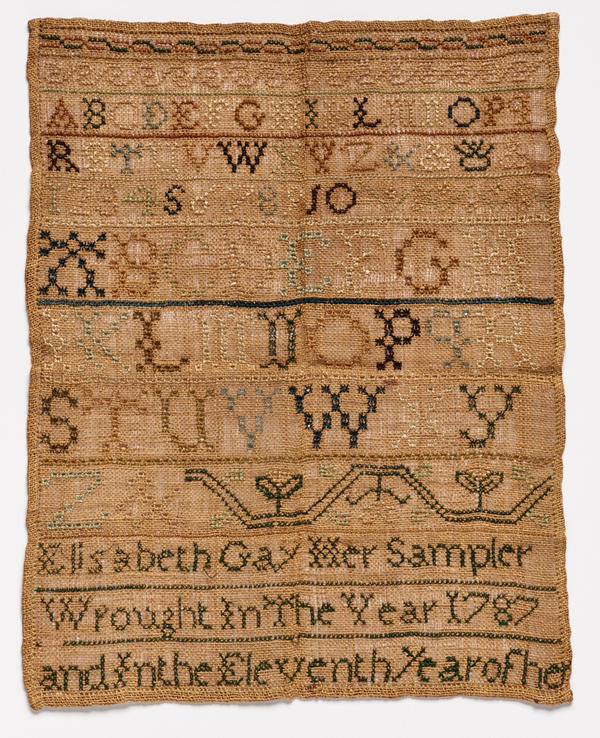 A B C D E F G H I K L M N O P Q
R S T U V W X Y Z & &
1 2 3 4 5 6 7 8 9 10
A B C D E F G H
I K L M N O P Q R
S T U V W X Y
Z
Elisabeth Gay Her Sampler
Wrought In The Year 1787
and In the Eleventh Year of he